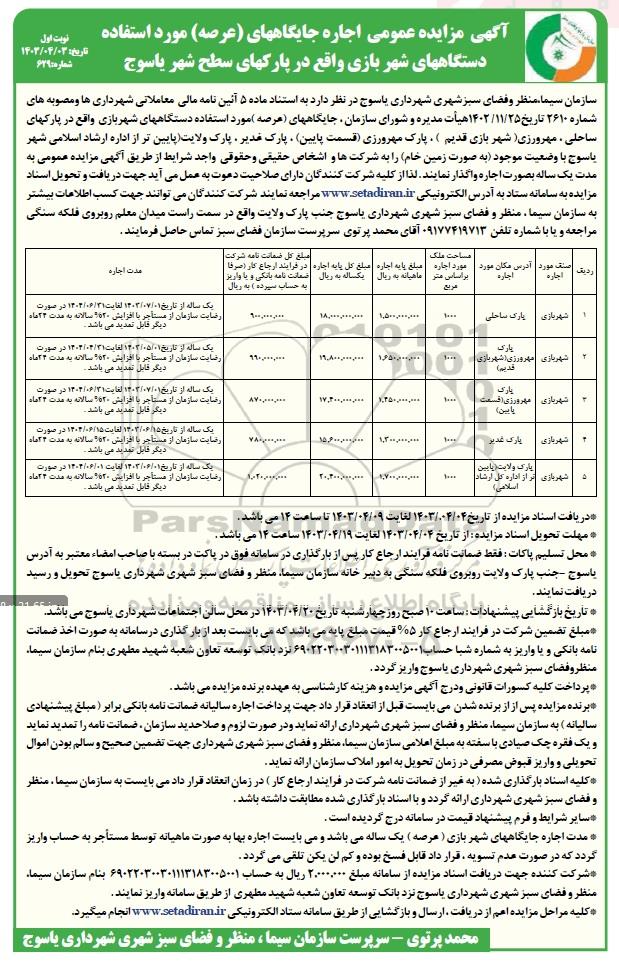 آگهی مزایده عمومی اجاره جایگاههای (عرصه) مورد استفاده
دستگاههای شهر بازی واقع در پارکهای سطح شهر یاسوج
نوبت اول
تاریخ: ۱۴۰۳/۰۴/۰۳
شماره: ۶۲۹
سازمان سیما،منظر وفضای سبزشهری شهرداری یاسوج در نظر دارد به استناد ماده ۵ آئین نامه مالی معاملاتی شهرداری ها ومصوبه های
شماره ۲۶۱۰ تاریخ۱۴۰۲/۱۱/۲۵هیأت مدیره و شورای سازمان ، جایگاههای (عرصه )مورد استفاده دستگاههای شهربازی واقع در پارکهای
ساحلی ، مهرورزی( شهر بازی قدیم ) ، پارک مهرورزی (قسمت پایین) ، پارک غدیر ، پارک ولایت(پایین تر از اداره ارشاد اسلامی شهر
یاسوج با وضعیت موجود (به صورت زمین خام) را به شرکت ها و اشخاص حقیقی وحقوقی واجد شرایط از طریق آگهی مزایده عمومی به
مدت یک ساله بصورت اجاره واگذار نمایند. لذا از کلیه شرکت کنندگان دارای صلاحیت دعوت به عمل می آید جهت دریافت و تحویل اسناد
مزایده به سامانه ستاد به آدرس الکترونیکی www.setadiran.ir مراجعه نمایند شرکت کنندگان می توانند جهت کسب اطلاعات بیشتر
به سازمان سیما ، منظر و فضای سبز شهری شهرداری یاسوج جنب پارک ولایت واقع در سمت راست میدان معلم روبروی فلکه سنگی
مراجعه و یا با شماره تلفن ۰۹۱۷۷۴۱۹۷۱۳ آقای محمد پرتوی سرپرست سازمان فضای سبز تماس حاصل فرمایند .
ردیف | صنف مورد اجاره | آدرس مکان مورد اجاره | مساحت ملک مورد اجاره براساس متر مربع | مبلغ پایه اجاره ماهیانه به ریال | مبلغ کل پایه اجاره یکساله به ریال | مبلغ کل ضمانت نامه شرکت در فرایند ارجاع کار (صرفا ضمانت نامه بانکی و یا واریز به حساب سپرده ) به ریال | مدت اجاره
۱ | شهربازی | پارک ساحلی | ۱۰۰۰ | ۱,۵۰۰,۰۰۰,۰۰۰ | ۱۸,۰۰۰,۰۰۰,۰۰۰ | ۹۰۰,۰۰۰,۰۰۰ | یک ساله از تاریخ۱۴۰۳/۰۷/۰۱ لغایت۱۴۰۴/۰۶/۳۱ در صورت رضایت سازمان از مستأجر با افزایش ۲۰% سالانه به مدت ۲۴ماه دیگر قابل تمدید می باشد .
۲ | شهربازی | پارک مهرورزی(شهربازی قدیم) | ۱۰۰۰ | ۱,۶۵۰,۰۰۰,۰۰۰ | ۱۹,۸۰۰,۰۰۰,۰۰۰ | ۹۹۰,۰۰۰,۰۰۰ | یک ساله از تاریخ۱۴۰۳/۰۵/۰۱ لغایت۱۴۰۴/۰۴/۳۱ در صورت رضایت سازمان از مستأجر با افزایش ۲۰% سالانه به مدت ۲۴ماه دیگر قابل تمدید می باشد .
۳ | شهربازی | پارک مهرورزی(قسمت پایین) | ۱۰۰۰ | ۱,۴۵۰,۰۰۰,۰۰۰ | ۱۷,۴۰۰,۰۰۰,۰۰۰ | ۸۷۰,۰۰۰,۰۰۰ | یک ساله از تاریخ۱۴۰۳/۰۷/۰۱ لغایت۱۴۰۴/۰۶/۳۱ در صورت رضایت سازمان از مستأجر با افزایش ۲۰% سالانه به مدت ۲۴ماه دیگر قابل تمدید می باشد .
۴ | شهربازی | پارک غدیر | ۱۰۰۰ | ۱,۳۰۰,۰۰۰,۰۰۰ | ۱۵,۶۰۰,۰۰۰,۰۰۰ | ۷۸۰,۰۰۰,۰۰۰ | یک ساله از تاریخ۱۴۰۳/۰۶/۱۵ لغایت۱۴۰۴/۰۶/۱۵ در صورت رضایت سازمان از مستأجر با افزایش ۲۰% سالانه به مدت ۲۴ماه دیگر قابل تمدید می باشد .
۵ | شهربازی | پارک ولایت(پایین تر از اداره کل ارشاد اسلامی) | ۱۰۰۰ | ۱,۷۰۰,۰۰۰,۰۰۰ | ۲۰,۴۰۰,۰۰۰,۰۰۰ | ۱,۰۲۰,۰۰۰,۰۰۰ | یک ساله از تاریخ۱۴۰۳/۰۶/۰۱ لغایت ۱۴۰۴/۰۶/۰۱ در صورت رضایت سازمان از مستأجر با افزایش ۲۰% سالانه به مدت ۲۴ماه دیگر قابل تمدید می باشد .
*دریافت اسناد مزایده از تاریخ۱۴۰۳/۰۴/۰۴ لغایت ۱۴۰۳/۰۴/۰۹ تا ساعت ۱۴ می باشد .
* مهلت تحویل اسناد مزایده : از تاریخ ۱۴۰۳/۰۴/۰۴ لغایت ۱۴۰۳/۰۴/۱۹ ساعت ۱۴ می باشد .
* محل تسلیم پاکات : فقط ضمانت نامه فرایند ارجاع کار پس از بارگذاری در سامانه فوق در پاکت در بسته با صاحب امضاء معتبر به آدرس
یاسوج -جنب پارک ولایت روبروی فلکه سنگی به دبیر خانه سازمان سیما، منظر و فضای سبز شهری شهرداری یاسوج تحویل و رسید
دریافت نمایند.
* تاریخ بازگشایی پیشنهادات : ساعت ۱۰ صبح روز چهارشنبه تاریخ ۱۴۰۳/۰۴/۲۰ در محل سالن اجتماعات شهرداری یاسوج می باشد.
*مبلغ تضمین شرکت در فرایند ارجاع کار ۵% قیمت مبلغ پایه می باشد که می بایست بعد از بار گذاری در سامانه به صورت اخذ ضمانت
نامه بانکی و یا واریز به شماره شبا حساب۶۹۰۲۲۰۳۰۰۳۰۱۱۱۳۱۸۳۰۰۵۰۰۱ نزد بانک توسعه تعاون شعبه شهید مطهری بنام سازمان سیما،
منظروفضای سبز شهری شهرداری یاسوج واریز گردد.
*پرداخت کلیه کسورات قانونی ودرج آگهی مزایده و هزینه کارشناسی به عهده برنده مزایده می باشد.
*برنده مزایده پس از از برنده شدن می بایست قبل از انعقاد قرار داد جهت پرداخت اجاره سالیانه ضمانت نامه بانکی برابر ( مبلغ پیشنهادی
سالیانه ) به سازمان سیما، منظر و فضای سبز شهری شهرداری ارائه نماید ودر صورت لزوم و صلاحدید سازمان ، ضمانت نامه را تمدید نماید
و یک فقره چک صیادی با سفته به مبلغ اعلامی سازمان سیما، منظر و فضای سبز شهری شهرداری جهت تضمین صحیح و سالم بودن اموال
تحویلی و واریز قبوض مصرفی در زمان تحویل به امور املاک سازمان ارائه نماید .
*کلیه اسناد بارگذاری شده ( به غیر از ضمانت نامه شرکت در فرایند ارجاع کار ) در زمان انعقاد قرار داد می بایست به سازمان سیما ، منظر
و فضای سبز شهری شهرداری ارائه گردد و با اسناد بارگذاری شده مطابقت داشته باشد .
*سایر شرایط و فرم پیشنهاد قیمت در سامانه درج گردیده است .
* مدت اجاره جایگاههای شهر بازی ( عرصه ) یک ساله می باشد و می بایست اجاره بها به صورت ماهیانه توسط مستأجر به حساب واریز
گردد که در صورت عدم تسویه ، قرار داد قابل فسخ بوده و کم لن یکن تلقی می گردد .
*شرکت کننده جهت دریافت اسناد مزایده از سامانه مبلغ ۲,۰۰۰,۰۰۰ ریال به حساب ۶۹۰۲۲۰۳۰۰۳۰۱۱۱۳۱۸۳۰۰۵۰۰۱ بنام سازمان سیما،
منظر و فضای سبز شهری شهرداری یاسوج نزد بانک توسعه تعاون شعبه شهید مطهری از طریق سامانه واریز نمایند .
*کلیه مراحل مزایده اعم از دریافت ، ارسال و بازگشایی از طریق سامانه ستاد الکترونیکی www.setadiran.ir انجام میگیرد.
محمد پرتوی - سرپرست سازمان سیما ، منظر و فضای سبز شهری شهرداری یاسوج